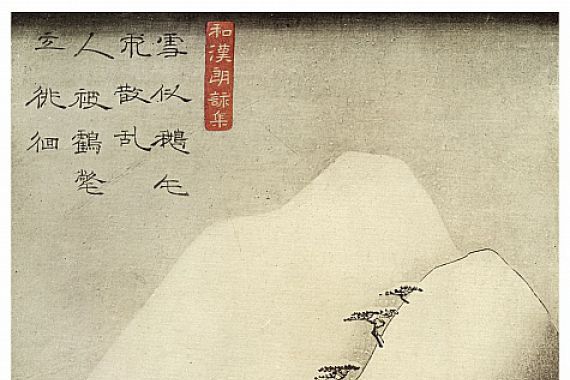 和漢朗詠集
雪似鵝毛
飛散乱
人被鶴氅
立徘徊